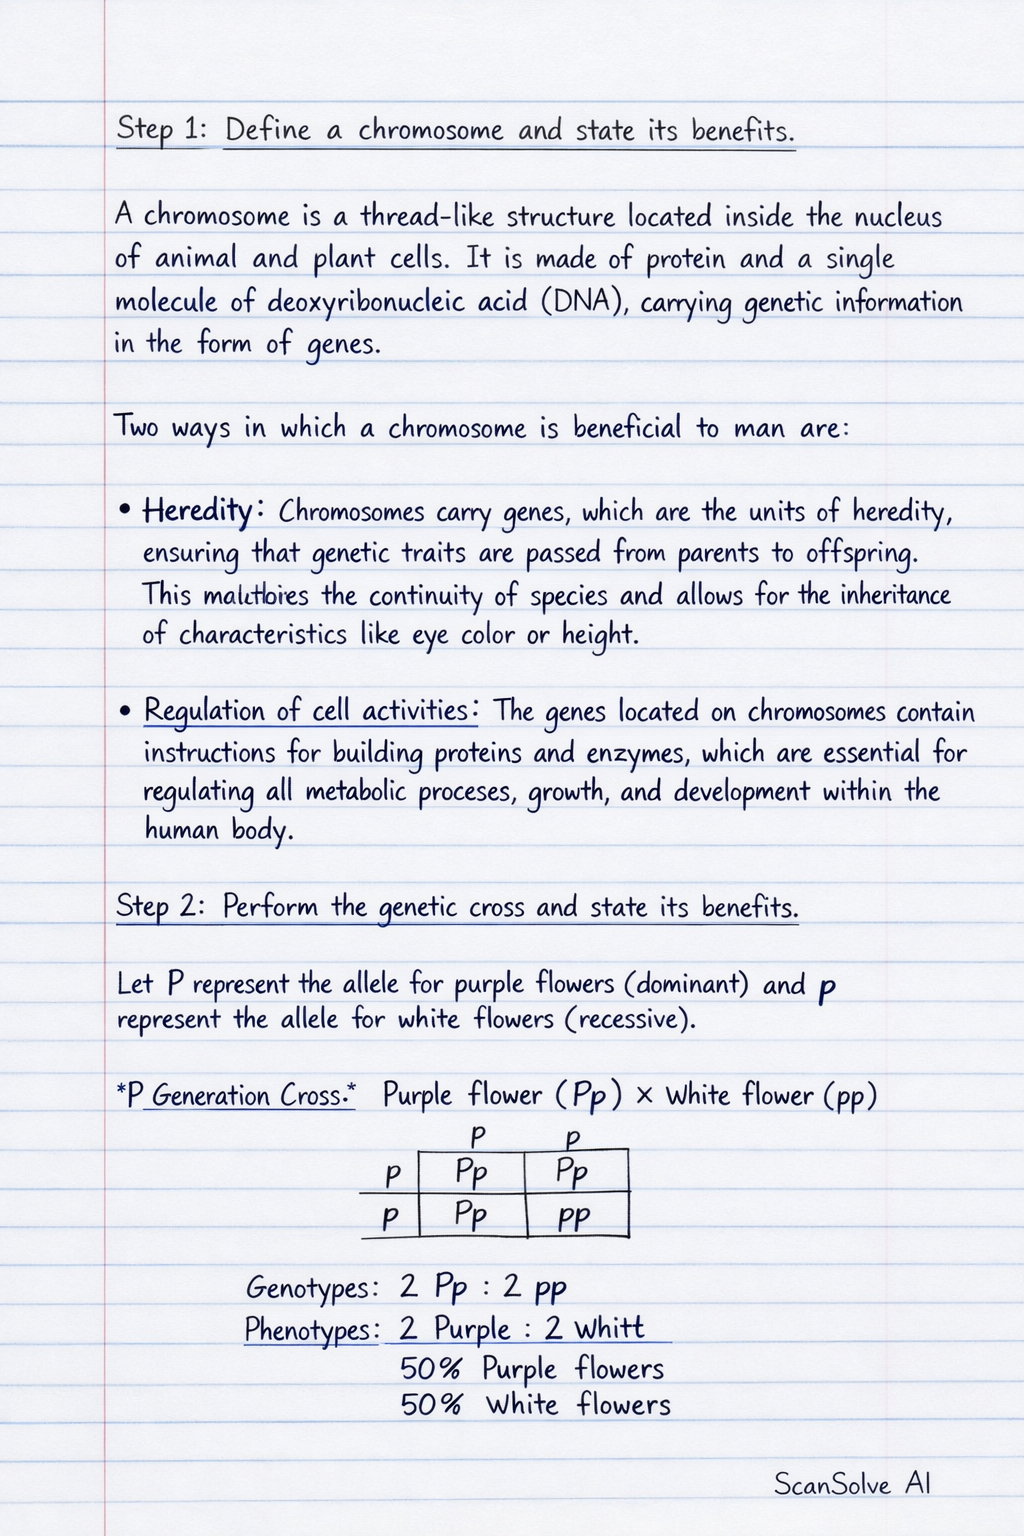 Step 1: Define a chromosome and state its benefits.
A chromosome is a thread-like structure located inside the nucleus
of animal and plant cells. It is made of protein and a single
molecule of deoxyribonucleic acid (DNA), carrying genetic information
in the form of genes.
Two ways in which a chromosome is beneficial to man are:
• Heredity: Chromosomes carry genes, which are the units of heredity,
ensuring that genetic traits are passed from parents to offspring.
This the continuity of species and allows for the inheritance
of characteristics like eye color or height.
• Regulation of cell activities: The genes located on chromosomes contain
instructions for building proteins and enzymes, which are essential for
regulating all metabolic proceses, growth, and development within the
human body.
Step 2: Perform the genetic cross and state its benefits.
Let P represent the allele for purple flowers (dominant) and p
represent the allele for white flowers (recessive).
*P Generation Cross.* Purple flower (Pp) × White flower (pp)
p p
p Pp Pp
p Pp pp
Genotypes: 2 Pp : 2 pp
Phenotypes: 2 Purple : 2 Whitt
50% Purple flowers
50% White flowers
ScanSolve AI